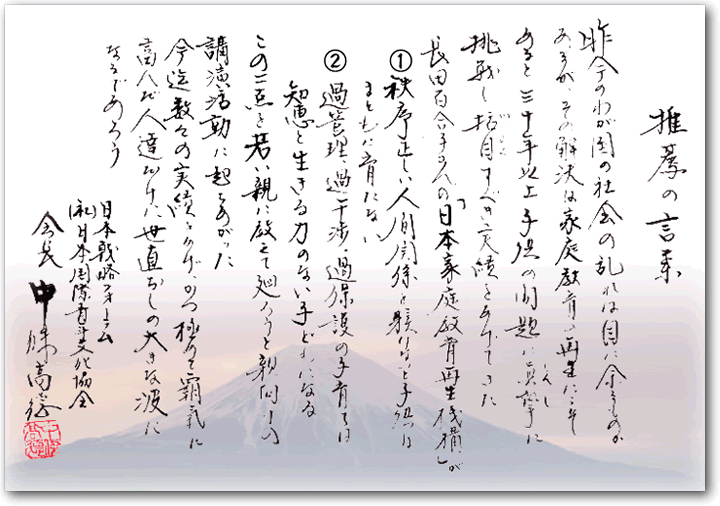 推薦の言葉
昨今のわが国の社会の乱れは目に余るものが
あるが、その解決は家庭教育の再生にこそ
あると三十年以上子供の問題に真摯に
しんし
挑戦し括目すべき実績をあげてきた
長田百合子さんの「日本家庭教育再生機構」が
① 秩序正しい人間関係と躾がないと子供は
まともに育たない
② 過管理、過干渉、過保護の子育ては
知恵と生きる力のない子どもになる
この二点を若い親に教えて廻ろうと親向けの
講演活動に起ちあがった
今迄数々の実績をあげ、かつ極めて覇気に
富んだ人達だけに世直しの大きな波に
なるであろう
日本戦略フォーラム
(社)日本国際青年文化協会
会長 中條高德